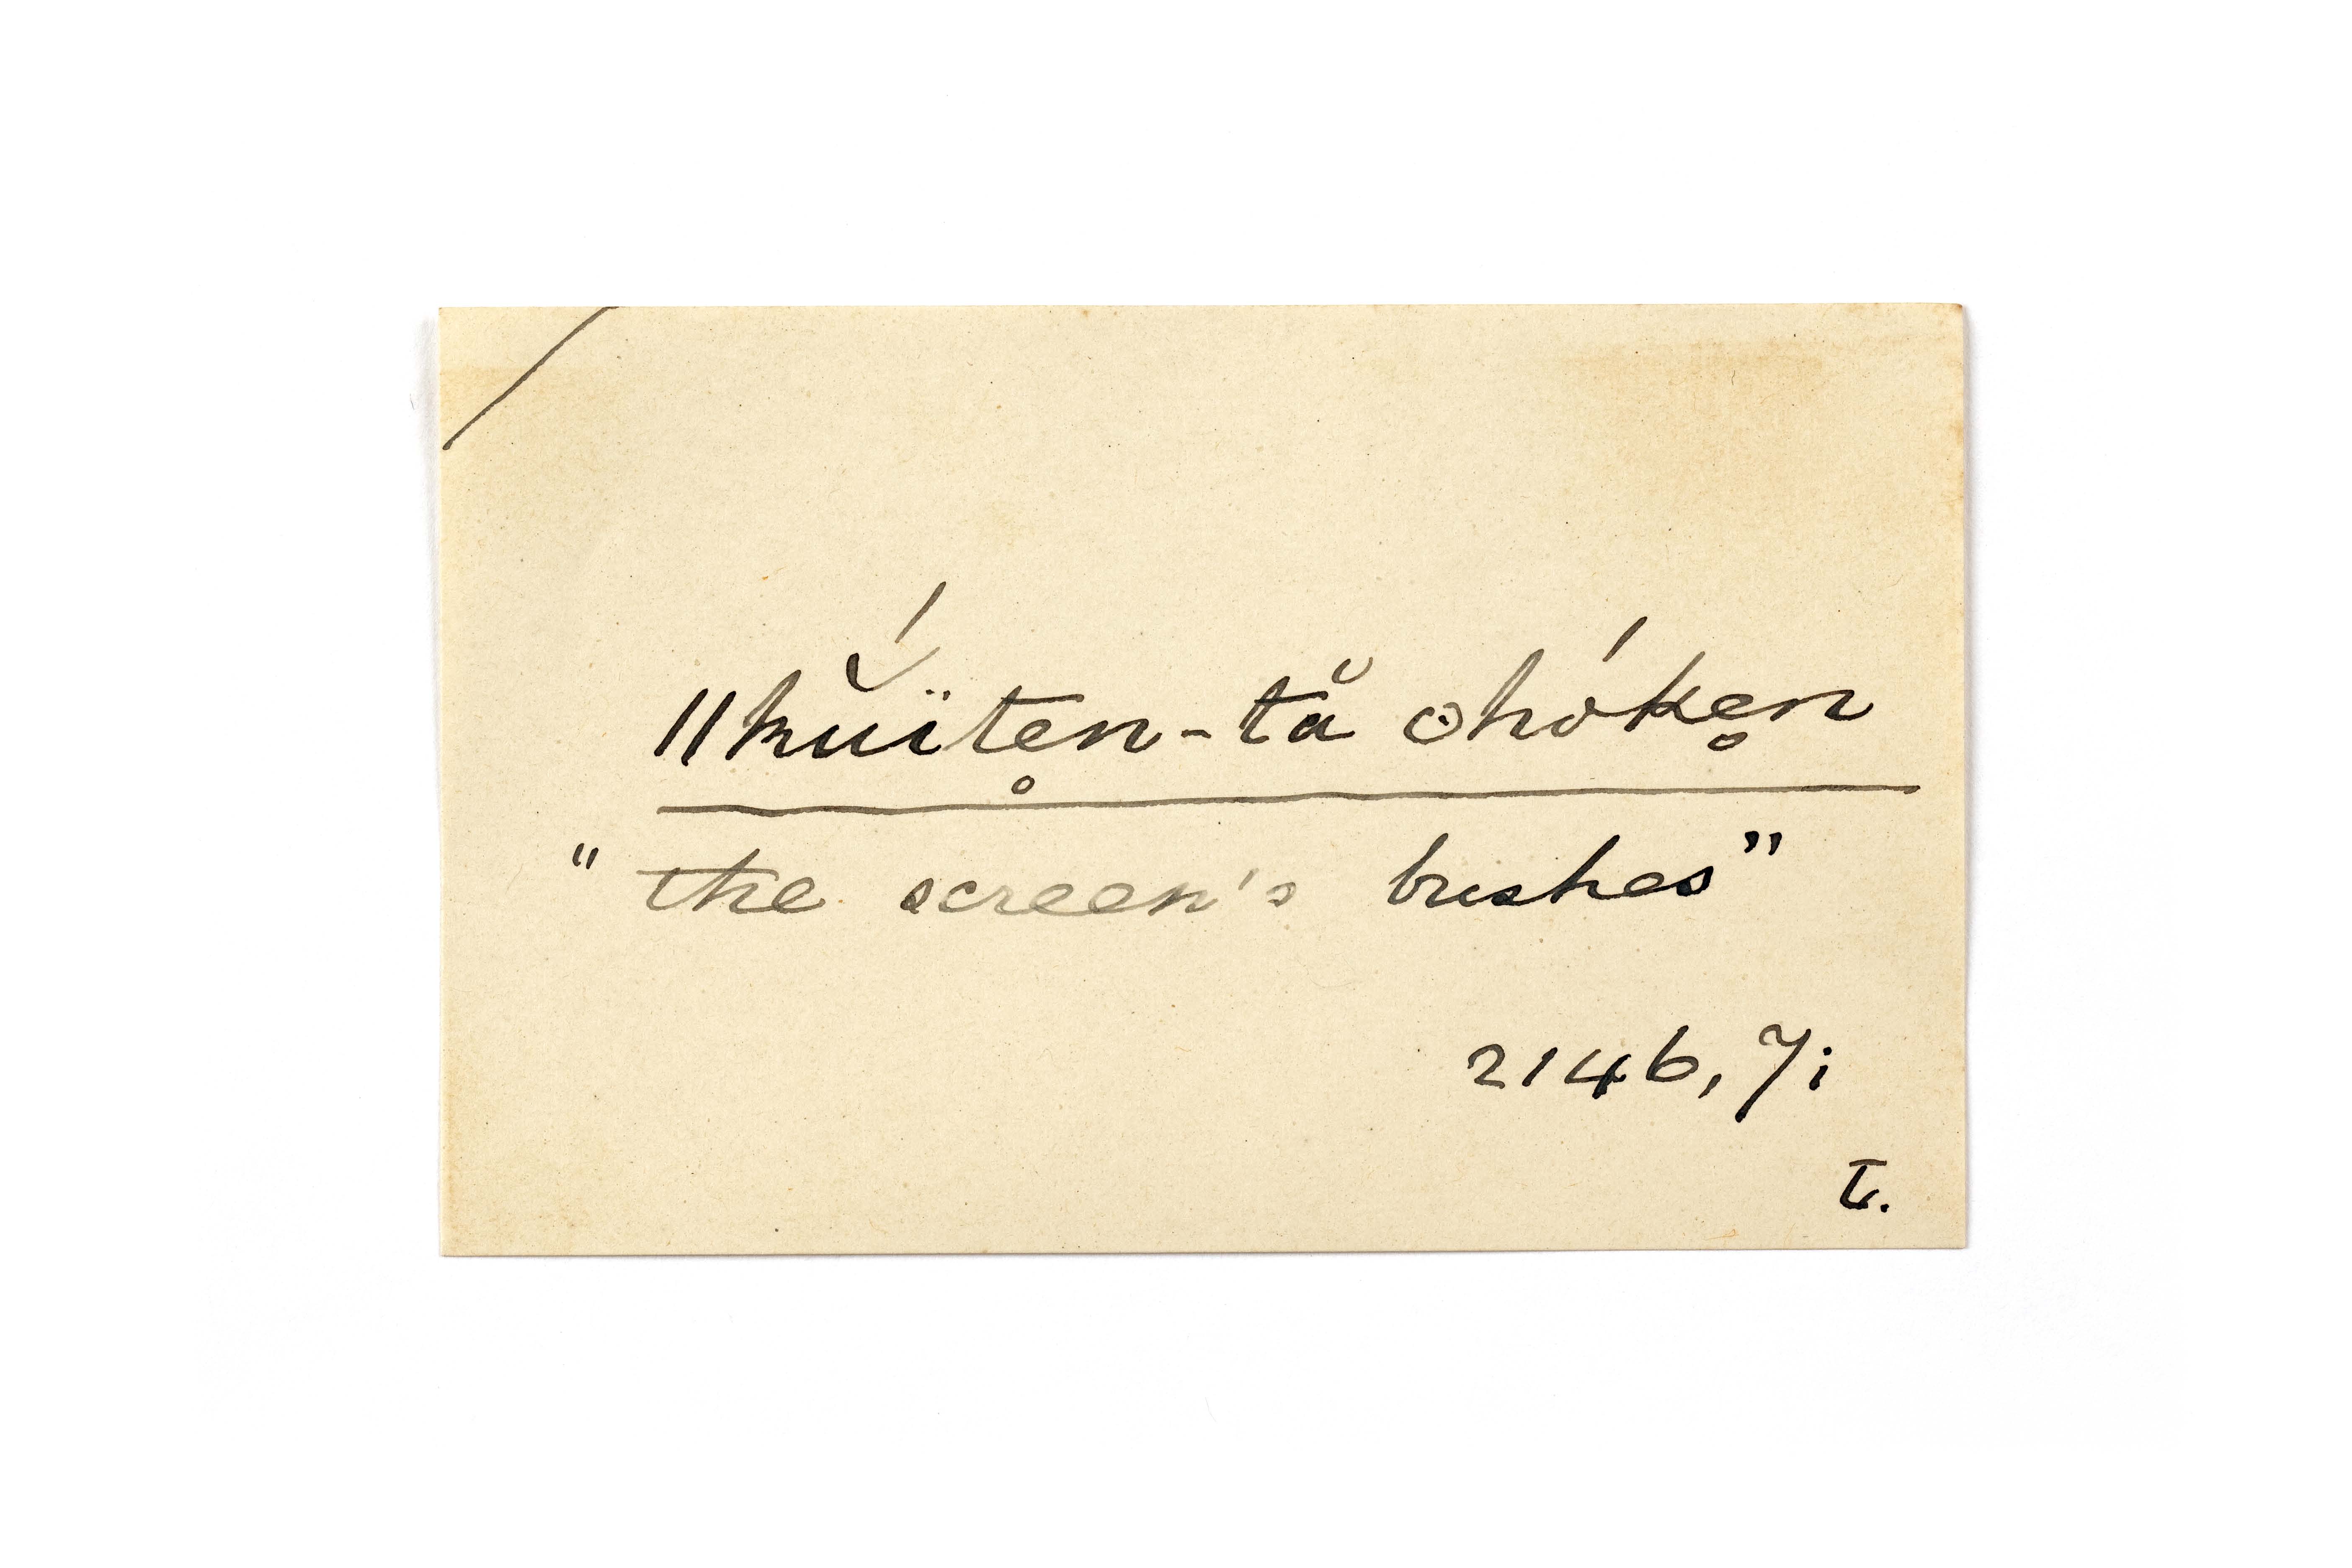 ǁkŭ́ïte̥n-tă ʘhóke̥n
"the screen's bushes"
2146, 7i
L.